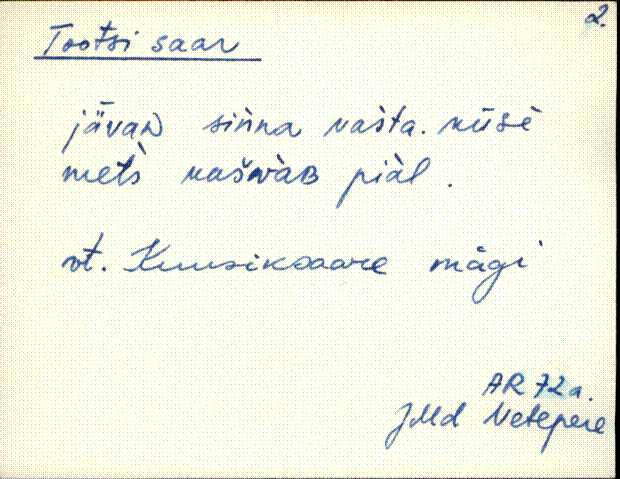 2.
Tootsi saar
jä̆vaᴅ siǹna vašta. küsè
metš kašvàʙ piàl.
vt. Kuusiksaare mägi
AR 72 a.
JMd Vetepere